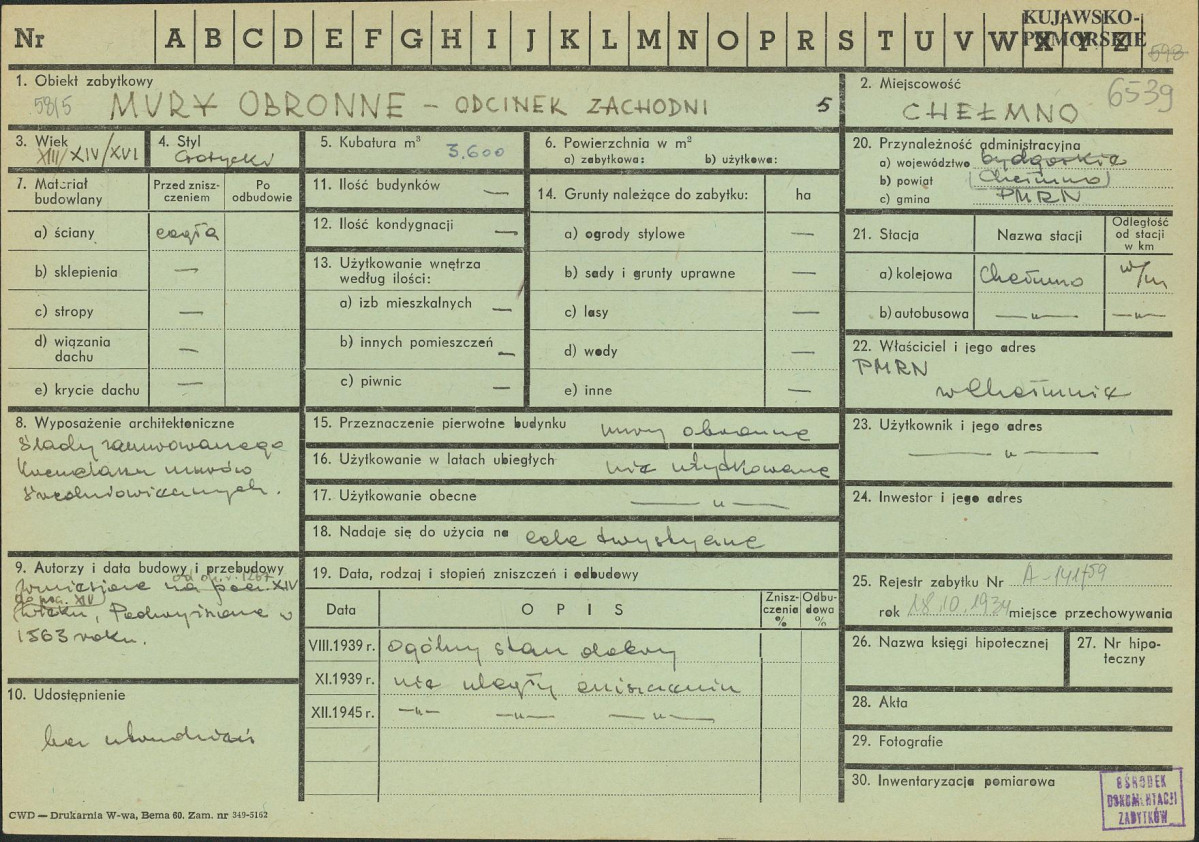 Nr A B C D E F G H I J K L M N O P R S T U V W X Y Z
KUJAWSKO-
POMORSKIE
593
1. Obiekt zabytkowy
5815 MURY OBRONNE – ODCINEK ZACHODNI 5
2. Miejscowość 6539
CHEŁMNO
3. Wiek
XIII/XIV/XVI
4. Styl
Gotycki
5. Kubatura m³ 3.600
6. Powierzchnia w m²
a) zabytkowa: b) użytkowa:
20. Przynależność administracyjna
a) województwo bydgoskie
b) powiat Chełmno
c) gmina PMRN
7. Materiał budowlany
Przed zniszczeniem
Po odbudowie
a) ściany cegła
b) sklepienia —
c) stropy —
d) wiązania dachu —
e) krycie dachu —
11. Ilość budynków —
12. Ilość kondygnacji —
13. Użytkowanie wnętrza
według ilości:
a) izb mieszkalnych —
b) innych pomieszczeń —
c) piwnic —
14. Grunty należące do zabytku: ha
a) ogrody stylowe —
b) sady i grunty uprawne —
c) lasy —
d) wody —
e) inne —
21. Stacja
Nazwa stacji
Odległość
od stacji
w km
a) kolejowa Chełmno w/m
b) autobusowa —„— —„—
22. Właściciel i jego adres
PMRN
w Chełmnie
8. Wyposażenie architektoniczne
Ślady zamurowanego
krenelażu murów
średniowiecznych.
15. Przeznaczenie pierwotne budynku mury obronne
16. Użytkowanie w latach ubiegłych nie użytkowane
17. Użytkowanie obecne —„—
18. Nadaje się do użycia na cele turystyczne
23. Użytkownik i jego adres
—„—
24. Inwestor i jego adres
9. Autorzy i data budowy i przebudowy
od ok. r. 1267
wzniesione na pocz. XIV
do poł. XIV
wieku, Podwyższone w
1563 roku.
10. Udostępnienie
bez utrudnień
19. Data, rodzaj i stopień zniszczeń i odbudowy
Data
OPIS
Zniszczenia %
Odbudowa %
VIII.1939 r. ogólny stan dobry
XI.1939 r. nie uległy zniszczeniu
XII.1945 r. —„— —„— —„—
25. Rejestr zabytku Nr A-141/59
rok 18.10.1934 miejsce przechowywania
26. Nazwa księgi hipotecznej
27. Nr hipoteczny
28. Akta
29. Fotografie
30. Inwentaryzacja pomiarowa
OŚRODEK
DOKUMENTACJI
ZABYTKÓW
CWD — Drukarnia W-wa, Bema 60. Zam. nr 349-5162